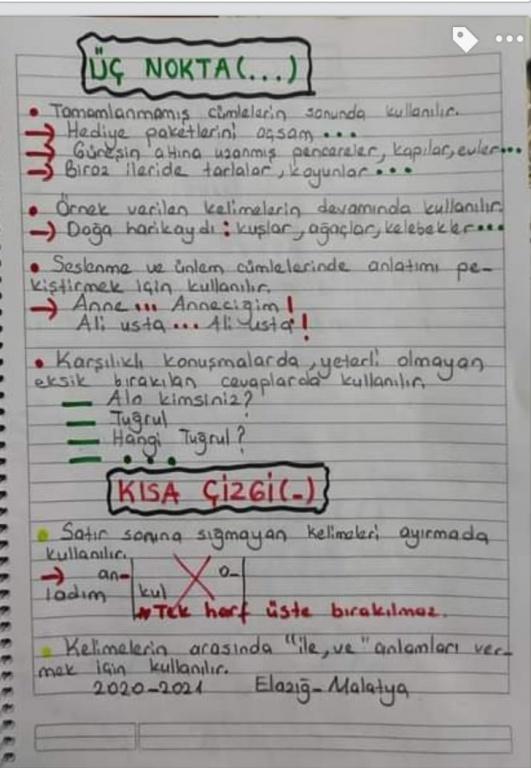 ÜÇ NOKTA(...)
• Tamamlanmamış cümlelerin sonunda kullanılır.
→ Hediye paketlerini açsam ...
→ Güneşin altına uzanmış pencereler, kapılar, evler...
→ Biraz ileride tarlalar, koyunlar ...
• Örnek verilen kelimelerin devamında kullanılır.
→ Doğa harikaydı : kuşlar, ağaçlar, kelebekler...
• Seslenme ve ünlem cümlelerinde anlatımı pe-
kiştirmek için kullanılır.
→ Anne ... Anneciğim !
Ali usta ... Ali usta !
• Karşılıklı konuşmalarda, yeterli olmayan
eksik bırakılan cevaplarda kullanılır.
— Alo kimsiniz?
— Tuğrul
— Hangi Tuğrul?
— ...
KISA ÇİZGİ(-)
• Satır sonına sığmayan kelimeleri ayırmada
kullanılır.
→ an- o-
ladım kul
Tek harf üste bırakılmaz.
• Kelimelerin arasında "ile, ve" anlamları ver-
mek için kullanılır.
2020-2021 Elazığ-Malatya